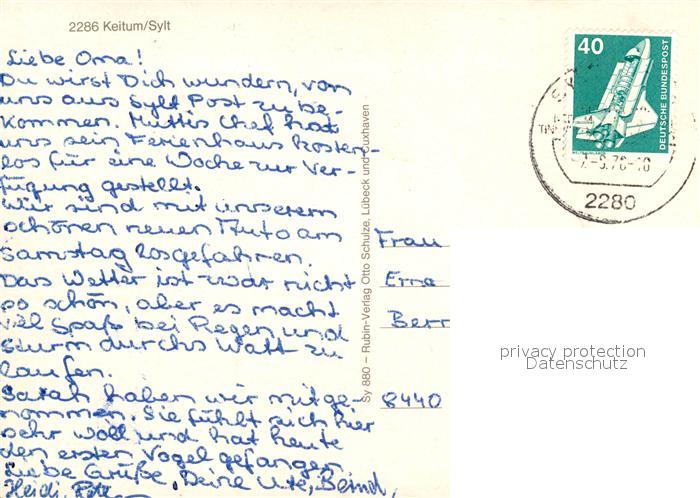 2286 Keitum/Sylt
Liebe Oma!
Du wirst Dich wundern, von
uns aus Sylt Post zu be-
kommen. Muttis Chef hat
uns sein Ferienhaus kosten-
los für eine Woche zur Ver-
fügung gestellt.
Wir sind mit unserem
schönen neuen Auto am
Samstag losgefahren.
Das Wetter ist zwar nicht
so schön, aber es macht
viel Spaß bei Regen und
Sturm durchs Watt zu
laufen.
Sarah haben wir mitge-
nommen. Sie fühlt sich hier
sehr woll und hat heute
den ersten Vogel gefangen.
Liebe Grüße, Deine Ute, Bernd,
Heidi,
Sy 880 – Rubin-Verlag Otto Schulze, Lübeck und Cuxhaven
40
DEUTSCHE BUNDESPOST
2280
Frau
Erna
Berr
8440
privacy protection
Datenschutz